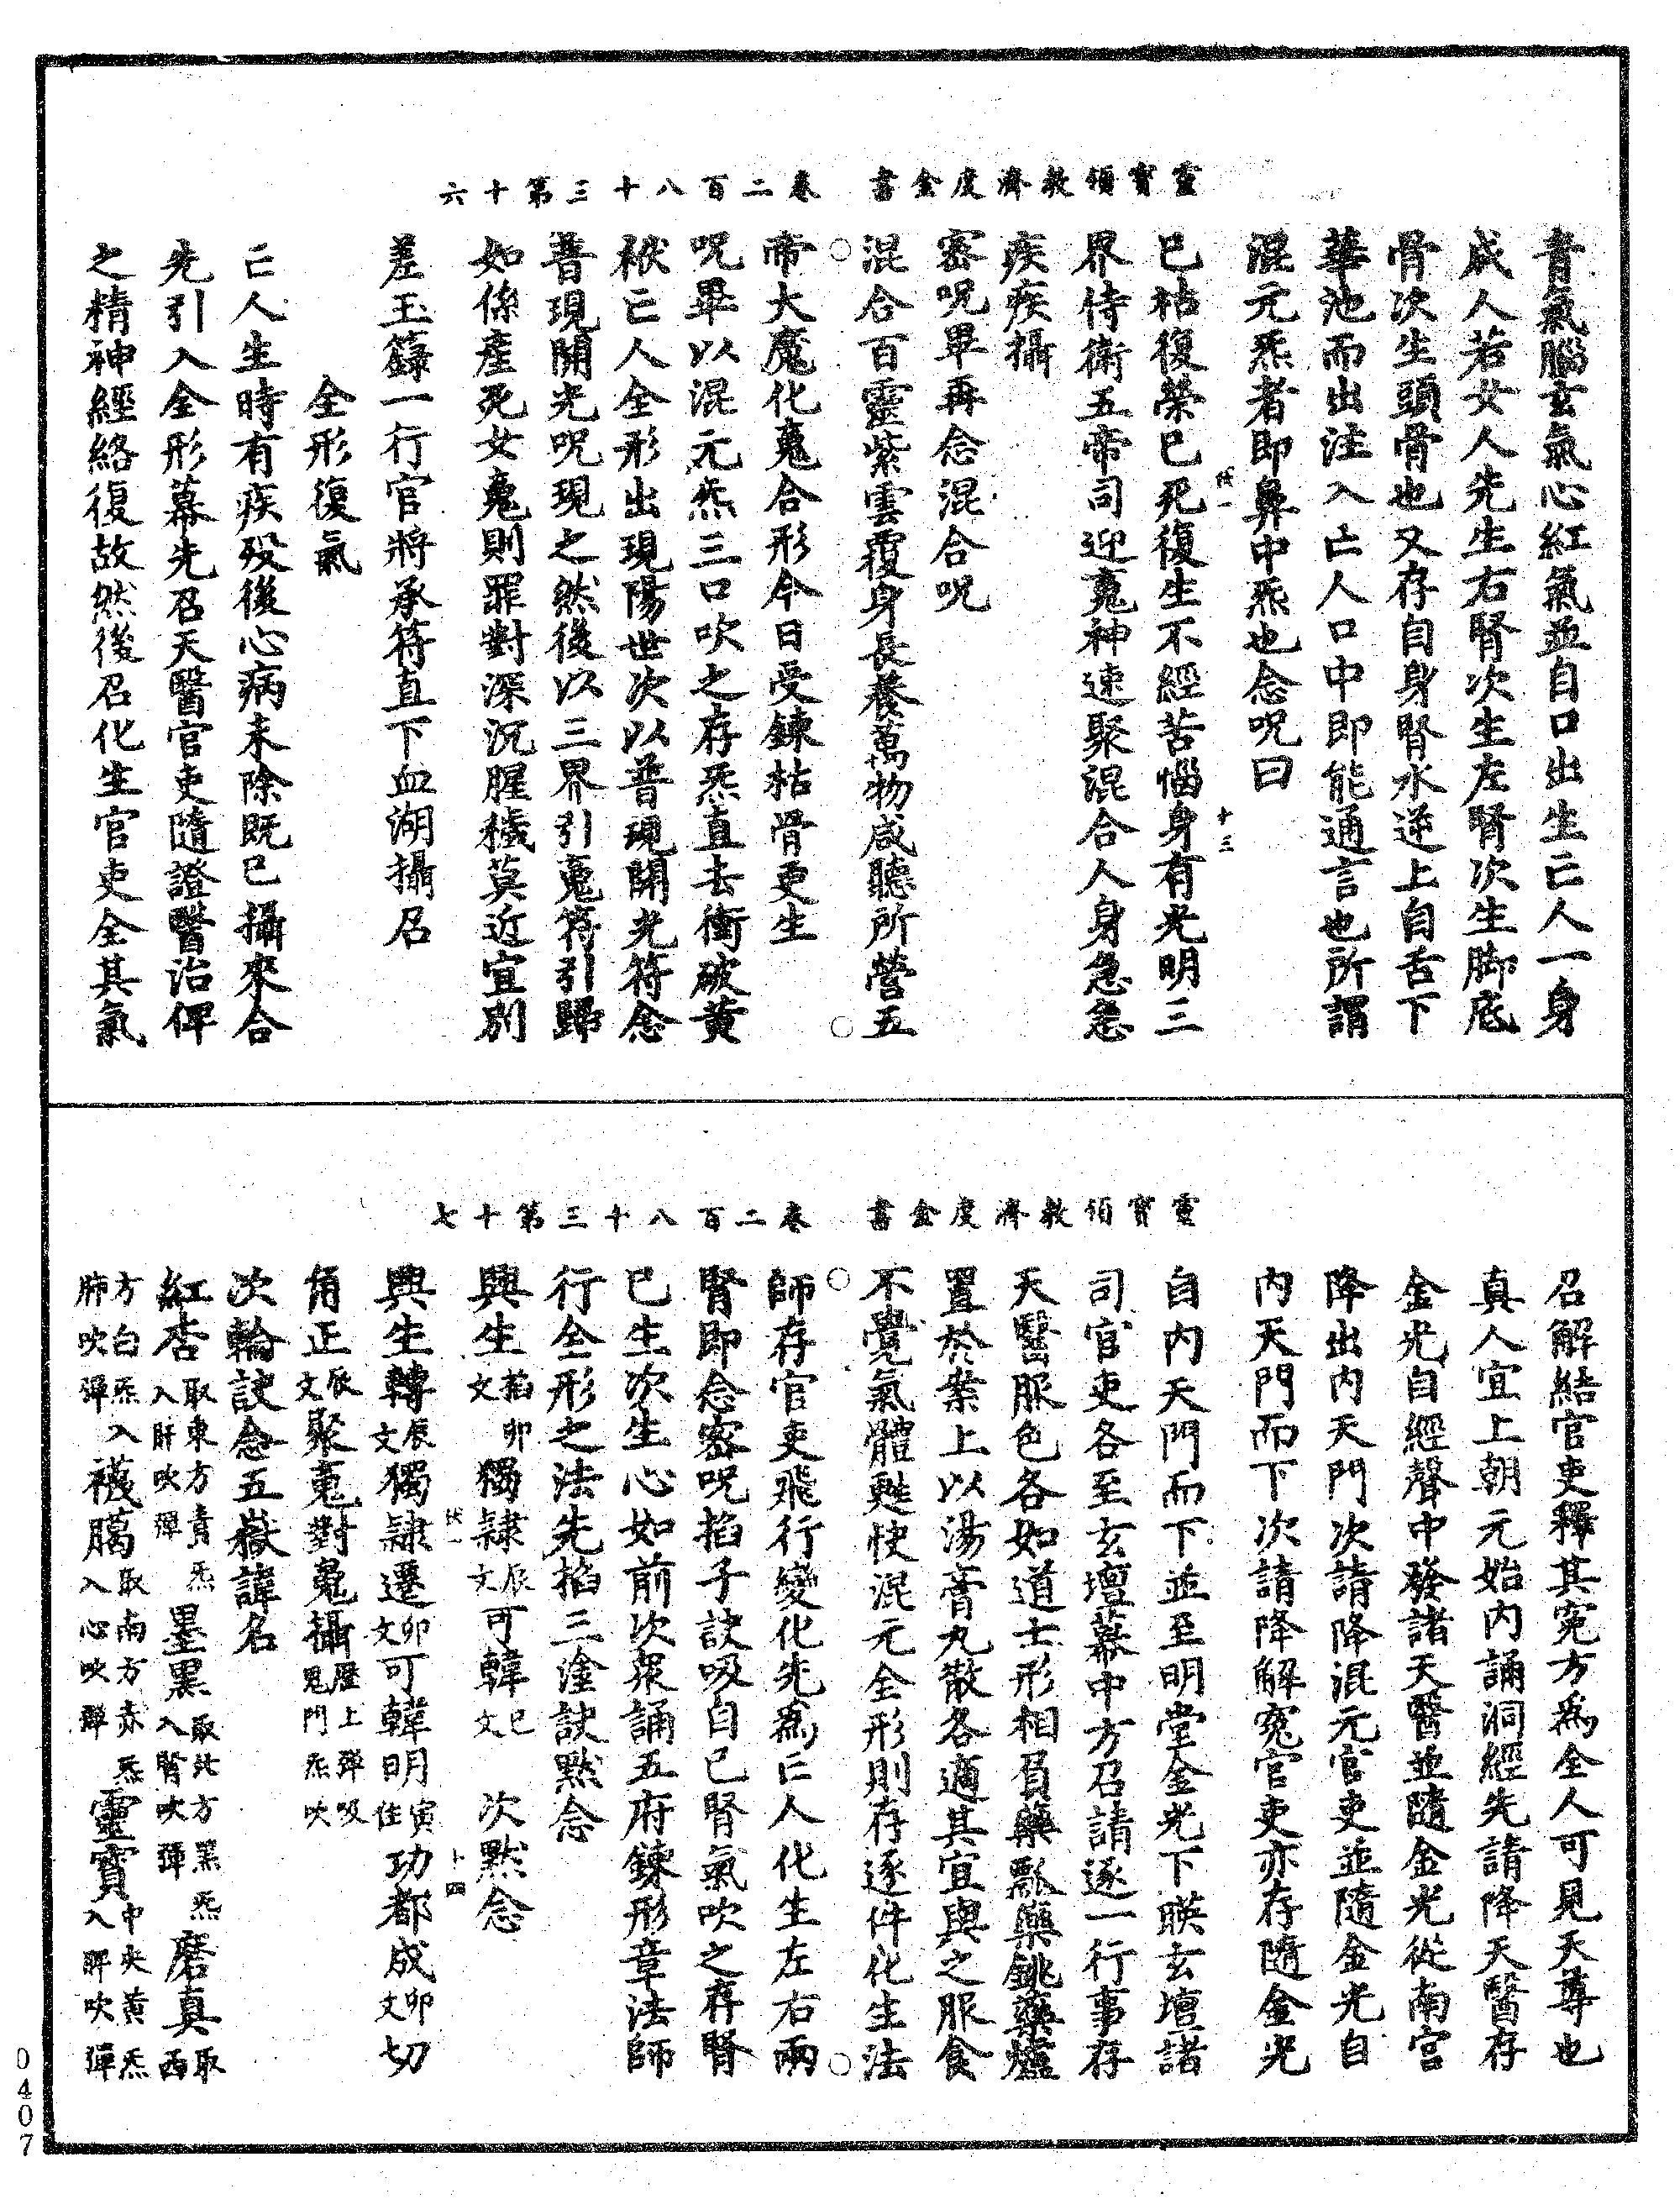 靈寶領教濟度金書　卷二百八十三第十六
青氣腦玄氣心紅氣並自口出生亡人一身
成人若女人先生右腎次生左腎次生脚底
骨次生頭骨也又存自身腎水逆上自舌下
華池而出注入亡人口中即能通言也所謂
混元炁者即鼻中炁也念呪曰
已枯復榮已死復生不經苦惱身有光明三
界侍衛五帝司迎䰟神速聚混合人身急急
疾疾攝
密呪畢再念混合呪
混合百靈紫雲覆身長養萬物咸聽所營五
帝大魔化䰟合形今日受鍊枯骨更生
呪畢以混元炁三口吹之存炁直去衝破黃
袱亡人全形出現陽世次以普現開光符念
普現開光呪現之然後以三界引䰟符引歸
如係產死女䰟則罪對深沉腥穢莫近宜別
差玉籙一行官將承符直下血湖攝召
全形復氣
亡人生時有疾歿後心病未除既已攝來合
先引入全形幕先召天醫官吏隨證醫治俾
之精神經絡復故然後召化生官吏全其氣
十三
靈寶領教濟度金書　卷二百八十三第十七
召解結官吏釋其冤方爲全人可見天尊也
真人宜上朝元始內誦洞經先請降天醫存
金光自經聲中發諸天醫並隨金光從南宮
降出內天門次請降混元官吏並隨金光自
內天門而下次請降解冤官吏亦存隨金光
自內天門而下並至明堂金光下暎玄壇諸
司官吏各至玄壇幕中方召請逐一行事存
天醫服色各如道士形相肩藥瓢藥銚藥爐
置於案上以湯膏丸散各適其宜與之服食
不覺氣體甦快混元全形則存逐件化生法
師存官吏飛行變化先爲亡人化生左右兩
腎即念密呪掐子訣吸自己腎氣吹之存腎
已生次生心如前次衆誦五府鍊形章法師
行全形之法先掐三塗訣默念
興生掐卯文獨隷辰文可韓巳文　次默念
興生轉辰文獨隷遷卯文可韓明寅佳功都成卯文切
角正辰文聚䰟對䰟攝歷上彈吸䰟門炁吹
次輪訣念五嶽諱名
紅杏取東方青炁入肝吹彈墨黑取北方黑炁入腎吹彈磨真取西
方白炁入肺吹彈襪臈取南方赤炁入心吹彈靈寶中央黃炁入脾吹彈
十四
0407